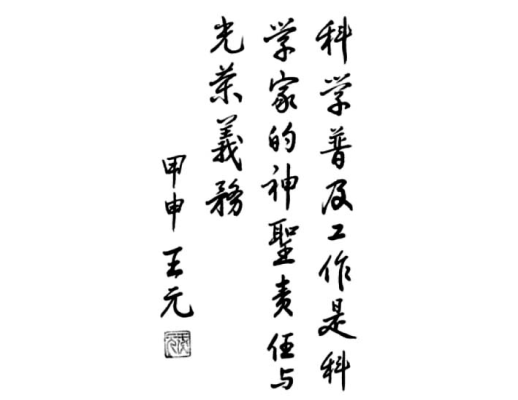 科学普及工作是科
学家的神聖责任与
光荣義務
甲申 王元